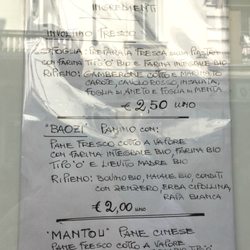 INGREDIENTI
INVOLTINO FRESCO
SFOGLIA: PREPARATA FRESCA
CON FARINA TIPO "0" BIO E FARINA INTEGRALE BIO
RIPIENO: GAMBERONE COTTO E MARINATO
CAROTE, CAVOLO ROSSO, INSALATA,
FOGLIA DI ANETO E FOGLIA DI MENTA
€ 2,50 UNO
"BAOZI" PANINO CON:
PANE FRESCO COTTO A VAPORE
CON FARINA INTEGRALE BIO, FARINA BIO
TIPO "0" E LIEVITO MADRE BIO
RIPIENO: BOVINO BIO, MAIALE BIO, CONDITI
CON ZENZERO, ERBA CIPOLLINA,
RAPA BIANCA
€ 2,00 UNO
"MANTOU" PANE CINESE
PANE FRESCO COTTO A VAPORE